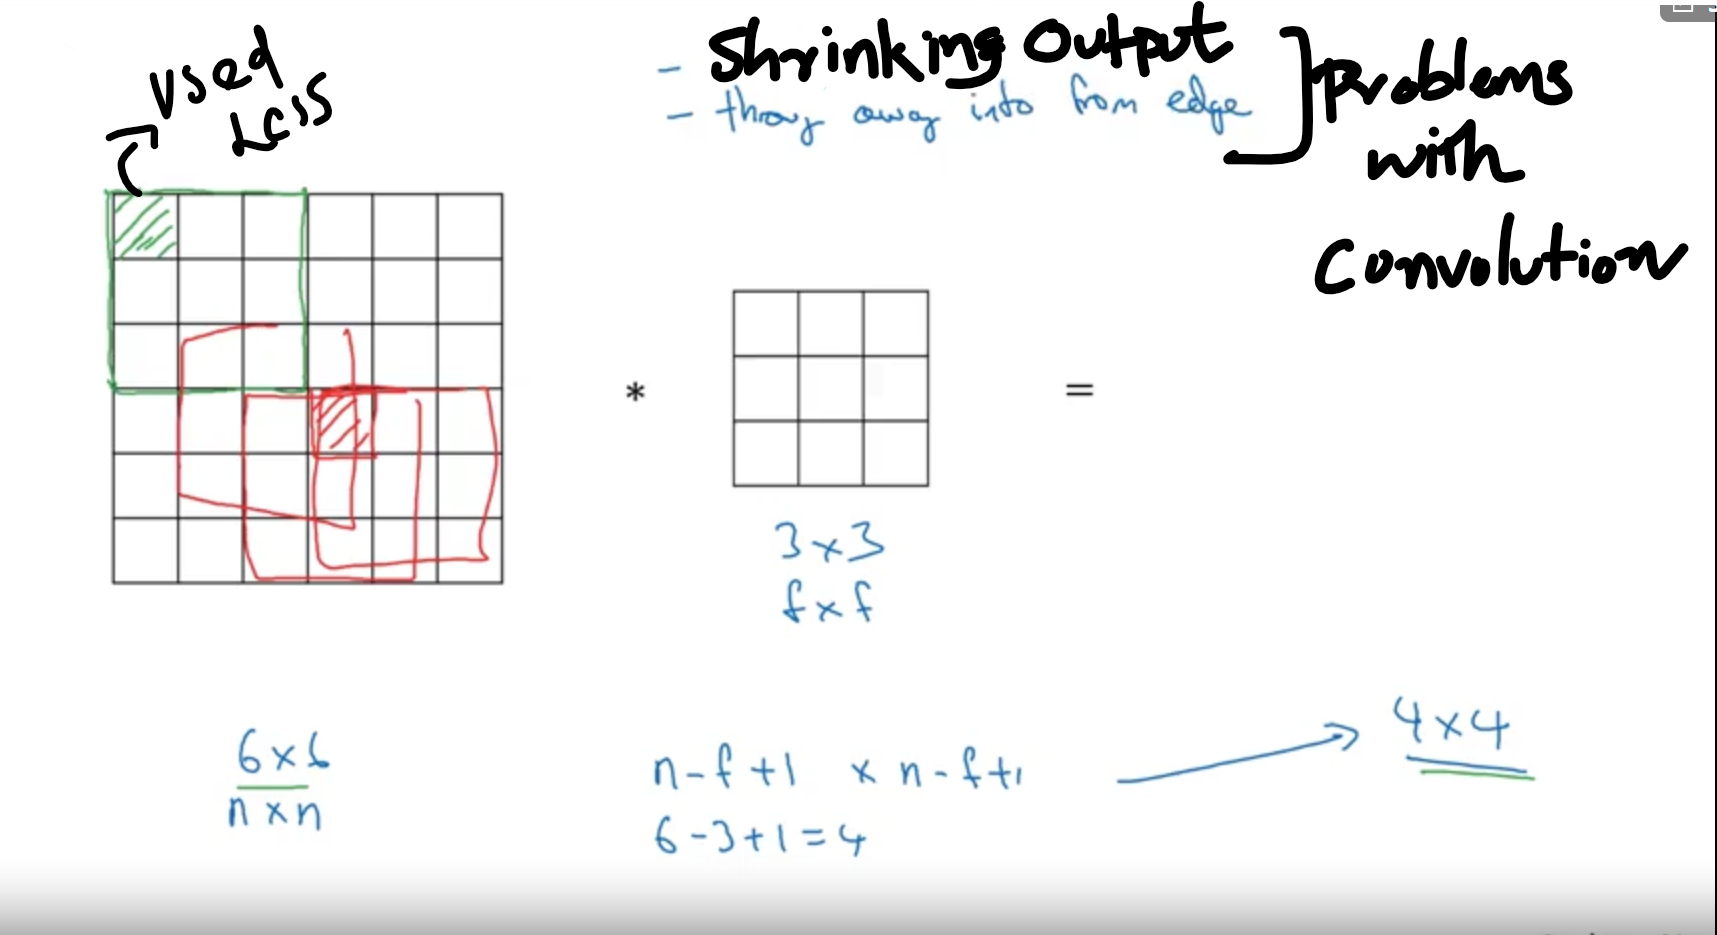 used
Less
- Shrinking Output
- throw away info from edge
Problems
with
Convolution
*
=
3 x 3
f x f
6 x 6
n x n
n - f + 1 x n - f + 1
6 - 3 + 1 = 4
4 x 4